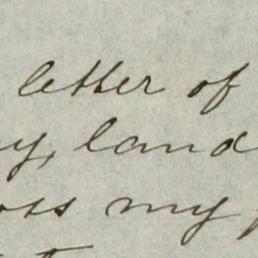 letter of
y, land
oss my